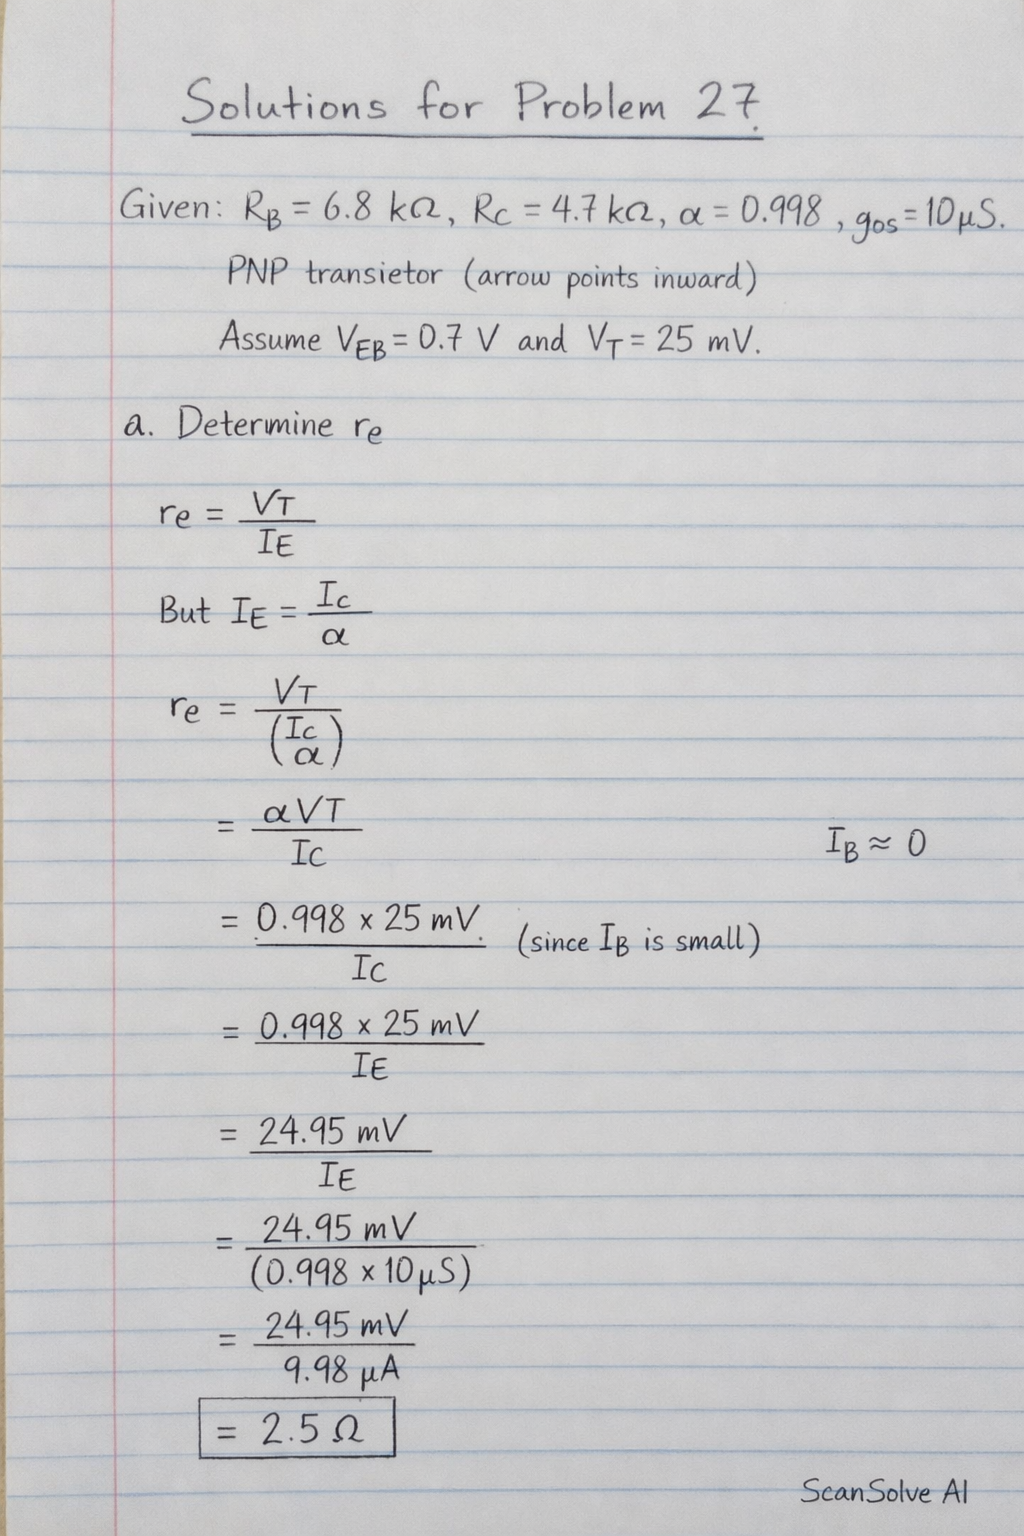 Solutions for Problem 27.
Given: RB = 6.8 kΩ, RC = 4.7 kΩ, α = 0.998 , gos = 10 μS.
PNP transietor (arrow points inward)
Assume VEB = 0.7 V and VT = 25 mV.
a. Determine re
re = VT / IE
But IE = Ic / α
re = VT / (Ic / α)
= αVT / IC
IB ≈ 0
= 0.998 x 25 mV. / IC (since IB is small)
= 0.998 x 25 mV / IE
= 24.95 mV / IE
= 24.95 mV / (0.998 x 10 μS)
= 24.95 mV / 9.98 μA
= 2.5 Ω
ScanSolve AI